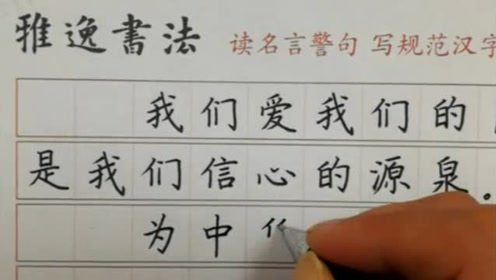 雅逸書法 读名言警句 写规范汉字
我们爱我们的
是我们信心的源泉。
为中